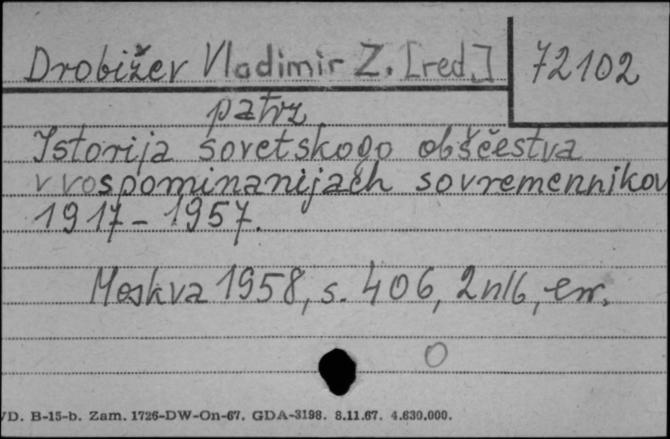 Drobižev Vladimir Z. [red.]
72102
patrz
Istorija sovetskogo obščestva
v vospominanijach sovremennikov
1917-1957.
Moskva 1958, s. 406, 2nlb, err.
VD. B-15-b. Zam. 1726-DW-On-67. GDA-3198. 8.11.67. 4.630.000.